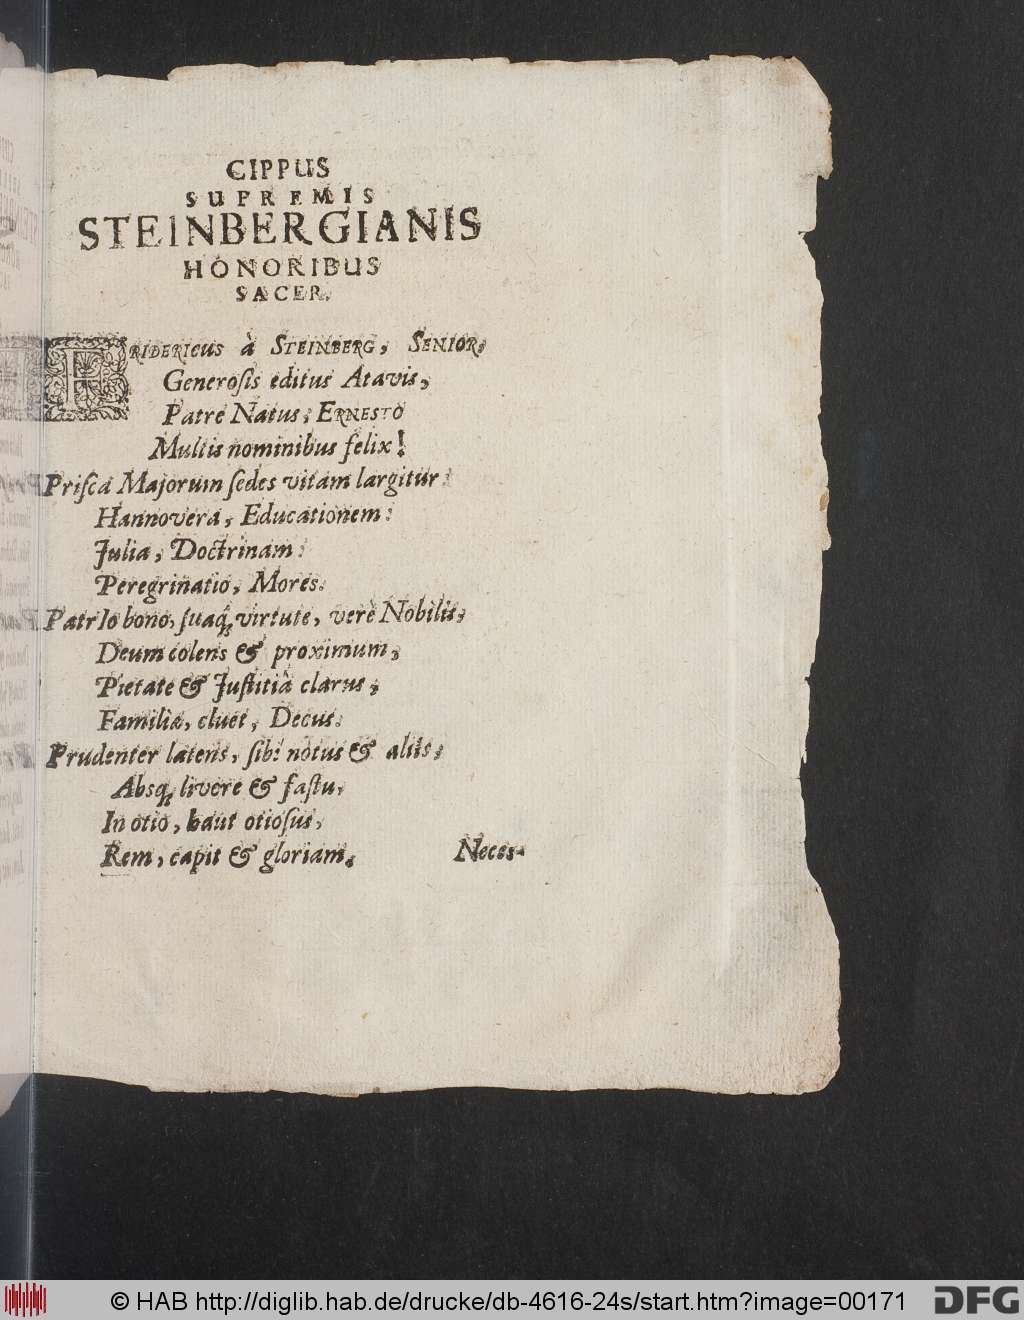 CIPPUS
SUPREMIS
STEINBERGIANIS
HONORIBUS
SACER.
FRIDERICUS à STEINBERG, SENIOR,
Generoſis editus Atavis,
Patre Natus, ERNESTO
Multis nominibus felix!
Priſca Majorum ſedes vitam largitur:
Hannovera, Educationem:
Julia, Doctrinam:
Peregrinatio, Mores.
Patrio bono, ſuaq; virtute, verè Nobilis,
Deum colens & proximum,
Pietate & Juſtitiâ clarus,
Familiæ, cluet, Decus.
Prudenter latens, ſibi notus & aliis,
Absq; livore & faſtu,
In otio, haut otioſus,
Rem, capit & gloriam.
Neces-
© HAB http://diglib.hab.de/drucke/db-4616-24s/start.htm?image=00171
DFG